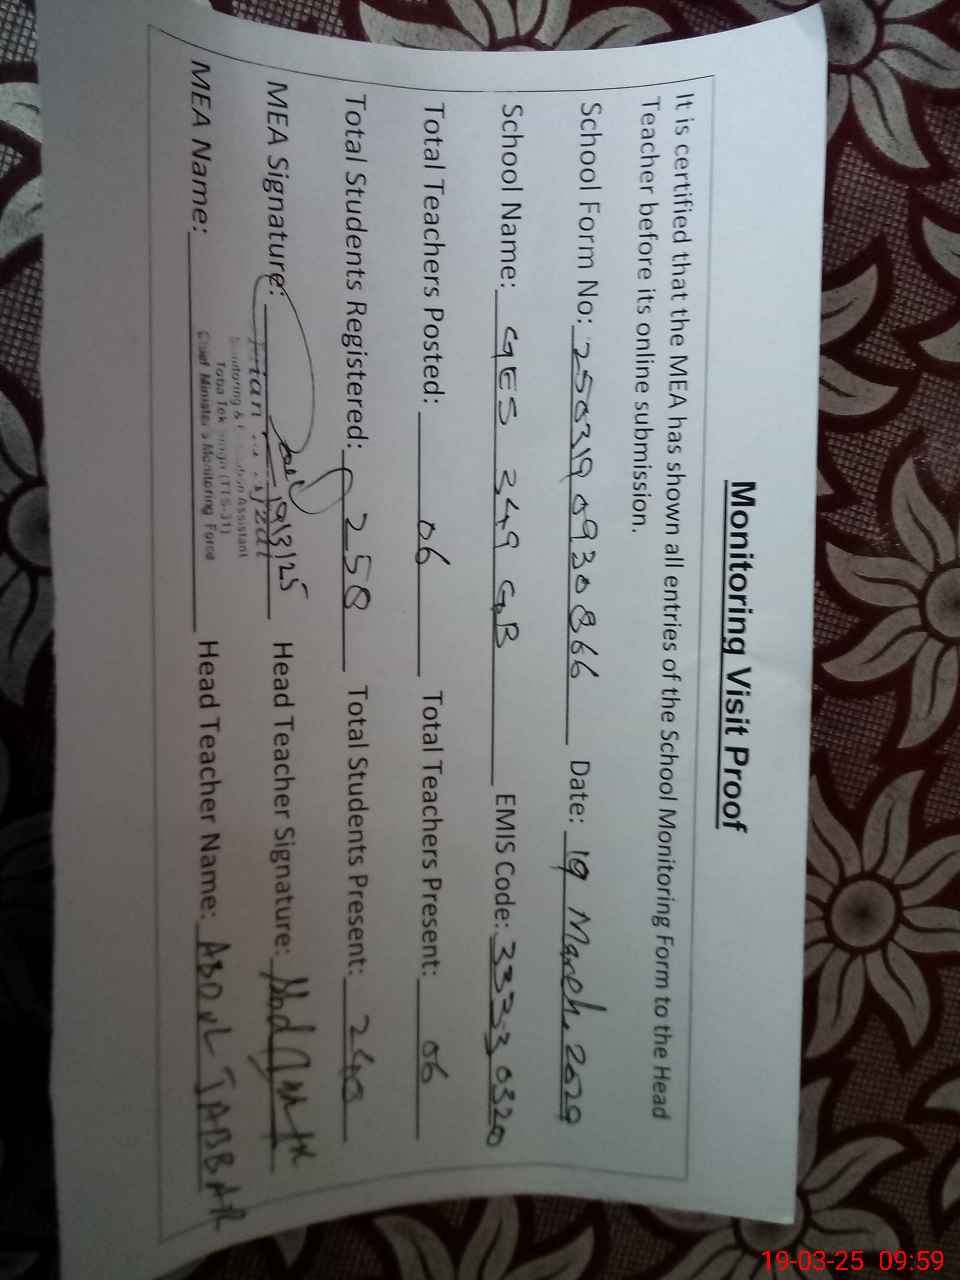 Monitoring Visit Proof
It is certified that the MEA has shown all entries of the School Monitoring Form to the Head
Teacher before its online submission.
School Form No: 2503190930866 Date: 19 March, 2020
School Name: GES 249 GB EMIS Code: 33330320
Total Teachers Posted: 06 Total Teachers Present: 06
Total Students Registered: 258 Total Students Present: 240
MEA Signature: 19/3/25 Head Teacher Signature:
MEA Name: Head Teacher Name: ABDUL JABBAR
Assistant
Toba Tek (TTS-31)
Chief Minister's Monitoring Force
19-03-25 09:59